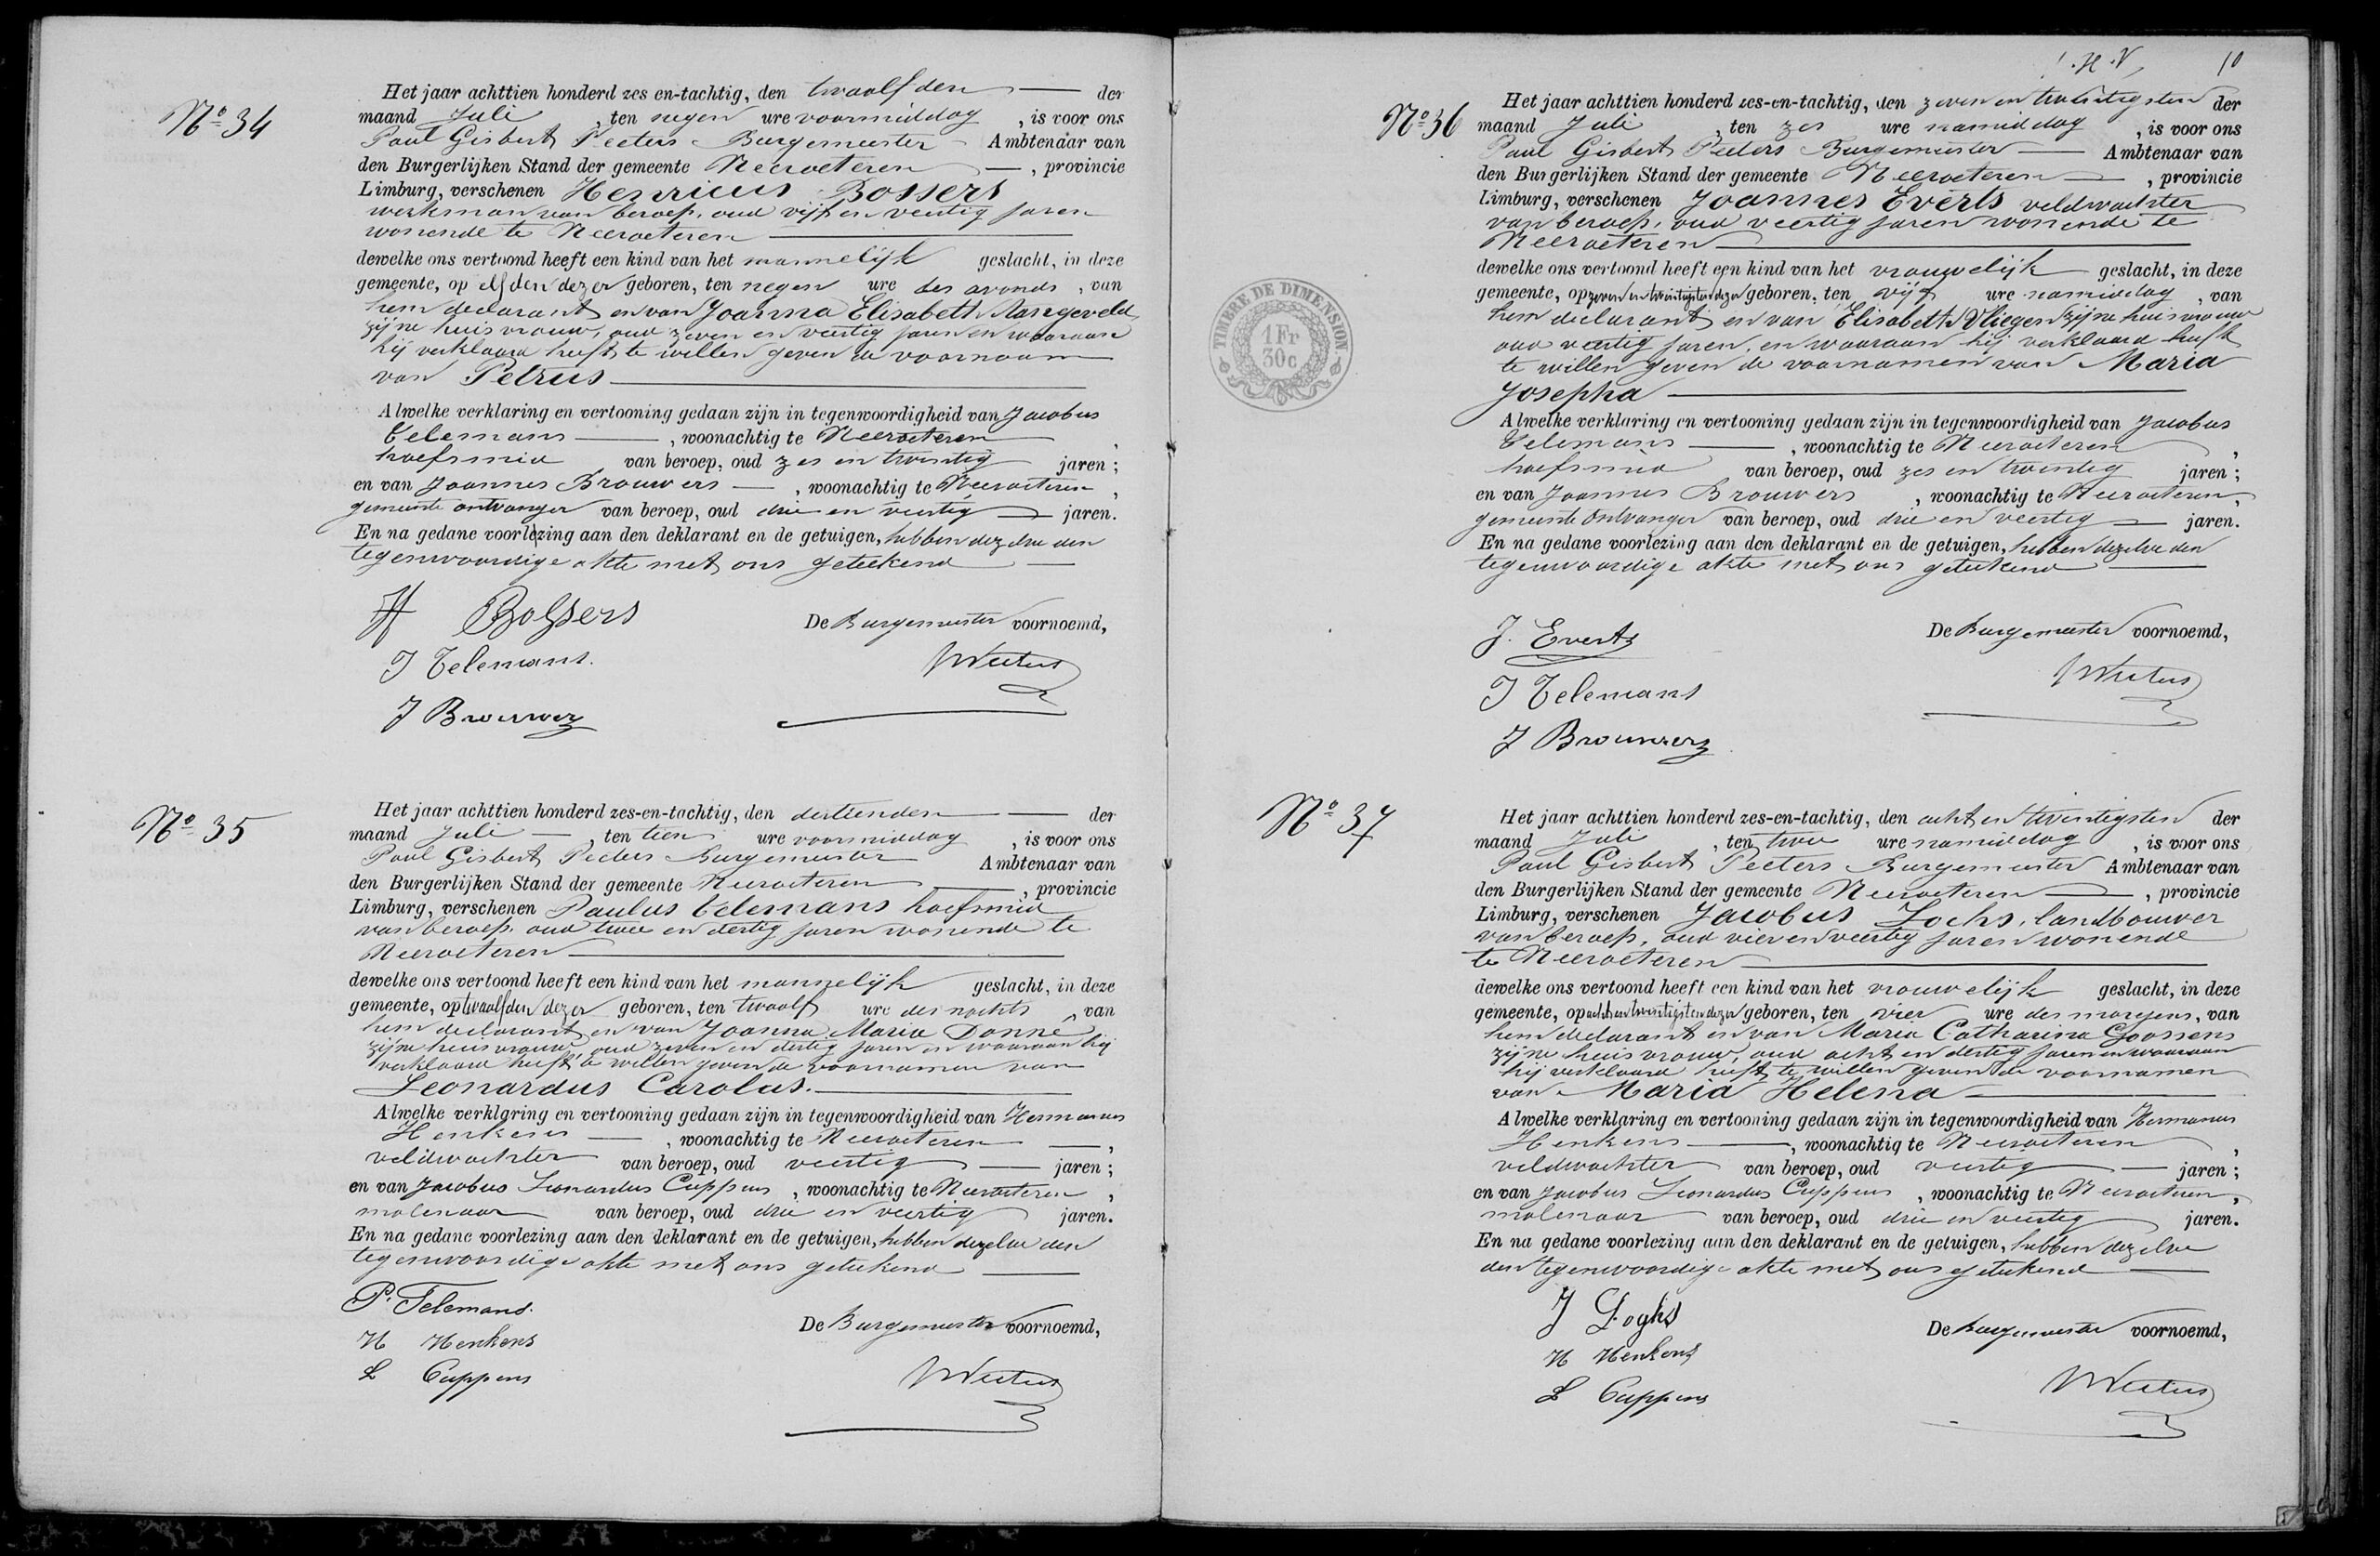 Nº 34
Het jaar achttien honderd zes en-tachtig, den twaalfden der
maand Juli, ten negen ure voormiddag, is voor ons
Paul Gisbert Peeters Burgemeester Ambtenaar van
den Burgerlijken Stand der gemeente Neeroeteren, provincie
Limburg, verschenen Henricus Bossers
werkman van beroep, oud vijf en veertig jaren
wonende te Neeroeteren
dewelke ons vertoond heeft een kind van het mannelijk geslacht, in deze
gemeente, op elfden dezer geboren, ten negen ure des avonds, van
hem declarant en van Joanna Elisabeth Langeveld
zijne huisvrouw, oud zeven en veertig jaren en waaraan
hij verklaard heeft te willen geven de voornaam
van Petrus
Alwelke verklaring en vertooning gedaan zijn in tegenwoordigheid van Jacobus
Telemans, woonachtig te Neeroeteren,
hoefsmid van beroep, oud zes en twintig jaren;
en van Joannes Brouwers, woonachtig te Neeroeteren,
gemeente ontvanger van beroep, oud drie en veertig jaren.
En na gedane voorlezing aan den deklarant en de getuigen, hebben dezelve den
tegenwoordige akte met ons geteekend
H Bossers
De Burgemeester voornoemd,
J Telemans.
PPeeters
J Brouwers
Nº 35
Het jaar achttien honderd zes-en-tachtig, den dertienden der
maand Juli, ten tien ure voormiddag, is voor ons
Paul Gisbert Peeters Burgemeester Ambtenaar van
den Burgerlijken Stand der gemeente Neeroeteren, provincie
Limburg, verschenen Paulus Telemans hoefsmid
van beroep, oud twee en dertig jaren wonende te
Neeroeteren
dewelke ons vertoond heeft een kind van het mannelijk geslacht, in deze
gemeente, op twaalfden dezer geboren, ten twaalf ure des nachts, van
hem declarant en van Joanna Maria Donné
zijne huisvrouw, oud zeven en dertig jaren en waaraan hij
verklaard heeft te willen geven de voornamen van
Leonardus Carolus.
Alwelke verklaring en vertooning gedaan zijn in tegenwoordigheid van Hermanus
Henkens, woonachtig te Neeroeteren,
veldwachter van beroep, oud veertig jaren;
en van Jacobus Leonardus Cuppens, woonachtig te Neeroeteren,
molenaar van beroep, oud drie en veertig jaren.
En na gedane voorlezing aan den deklarant en de getuigen, hebben dezelve den
tegenwoordige akte met ons geteekend
P. Telemans.
De Burgemeester voornoemd,
H Henkens
L Cuppens
PPeeters
H.V. 10
TIMBRE DE DIMENSION
1 Fr
30c
Nº 36
Het jaar achttien honderd zes-en-tachtig, den zeven en twintigsten der
maand Juli, ten zes ure namiddag, is voor ons
Paul Gisbert Peeters Burgemeester Ambtenaar van
den Burgerlijken Stand der gemeente Neeroeteren, provincie
Limburg, verschenen Joannes Everts veldwachter
van beroep, oud veertig jaren wonende te
Neeroeteren
dewelke ons vertoond heeft een kind van het vrouwelijk geslacht, in deze
gemeente, op zeven en twintigsten dezer geboren, ten vijf ure namiddag, van
hem declarant en van Elisabeth Vliegen zijne huisvrouw
oud veertig jaren, en waaraan hij verklaard heeft
te willen geven de voornamen van Maria
Josepha
Alwelke verklaring en vertooning gedaan zijn in tegenwoordigheid van Jacobus
Telemans, woonachtig te Neeroeteren,
hoefsmid van beroep, oud zes en twintig jaren;
en van Joannes Brouwers, woonachtig te Neeroeteren,
gemeente ontvanger van beroep, oud drie en veertig jaren.
En na gedane voorlezing aan den deklarant en de getuigen, hebben dezelve den
tegenwoordige akte met ons geteekend
J. Everts
De Burgemeester voornoemd,
J Telemans
PPeeters
J Brouwers
Nº 37
Het jaar achttien honderd zes-en-tachtig, den acht en twintigsten der
maand Juli, ten twee ure namiddag, is voor ons
Paul Gisbert Peeters Burgemeester Ambtenaar van
den Burgerlijken Stand der gemeente Neeroeteren, provincie
Limburg, verschenen Jacobus Lochs, landbouwer
van beroep, oud vier en veertig jaren wonende
te Neeroeteren
dewelke ons vertoond heeft een kind van het vrouwelijk geslacht, in deze
gemeente, op acht en twintigsten dezer geboren, ten vier ure des morgens, van
hem declarant en van Maria Catharina Goossens
zijne huisvrouw, oud acht en dertig jaren en waaraan
hij verklaard heeft te willen geven de voornamen
van Maria Helena
Alwelke verklaring en vertooning gedaan zijn in tegenwoordigheid van Hermanus
Henkens, woonachtig te Neeroeteren,
veldwachter van beroep, oud veertig jaren;
en van Jacobus Leonardus Cuppens, woonachtig te Neeroeteren,
molenaar van beroep, oud drie en veertig jaren.
En na gedane voorlezing aan den deklarant en de getuigen, hebben dezelve
den tegenwoordige akte met ons geteekend
J Loghs
De Burgemeester voornoemd,
H Henkens
L Cuppens
PPeeters